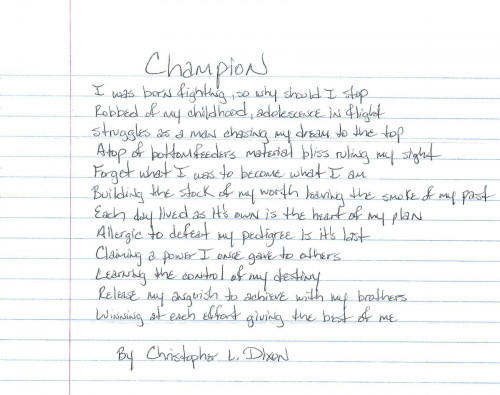 Champion
I was born fighting, so why should I stop
Robbed of my childhood, adolescence in flight
Struggles as a man chasing my dream to the top
Atop of bottomfeeders material bliss ruling my sight
Forget what I was to become what I am
Building the stock of my worth leaving the smoke of my past
Each day lived as it's own is the heart of my plan
Allergic to defeat my pedigree is it's last
Claiming a power I once gave to others
Learning the control of my destiny
Release my anguish to achieve with my brothers
Winning at each effort giving the best of me
By Christopher L. Dixon